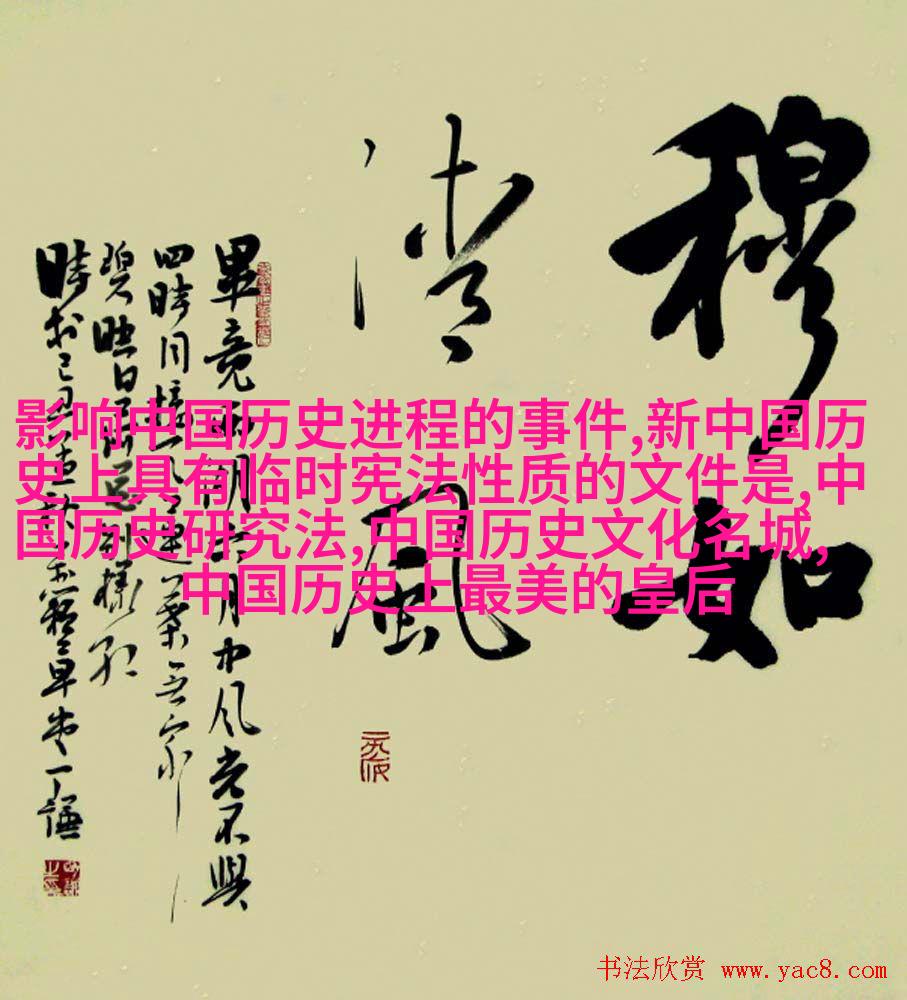 穆如
清風
畢竟西湖六月中風光不與
四時同接天蓮葉無窮
碧映日荷花別樣紅
影响中国历史进程的事件,新中国历
史上具有临时宪法性质的文件是,中
国历史研究法,中国历史文化名城,
中国历史上最美的皇后
书法欣赏 www.yac8.com